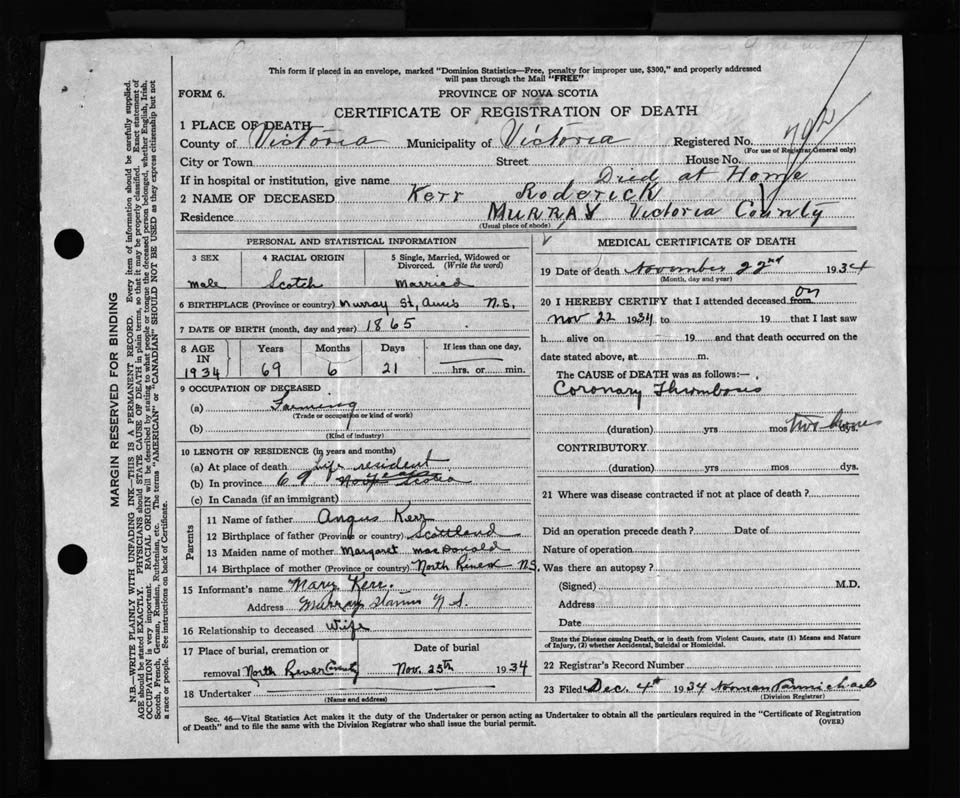 This form if placed in an envelope, marked "Dominion Statistics—Free, penalty for improper use, $300," and properly addressed
will pass through the Mail "FREE"
FORM 6.
PROVINCE OF NOVA SCOTIA
CERTIFICATE OF REGISTRATION OF DEATH
1 PLACE OF DEATH
County of Victoria Municipality of Victoria Registered No.
(For use of Registrar General only)
City or Town Street House No.
If in hospital or institution, give name Died at Home
2 NAME OF DECEASED Kerr Roderick
Residence MURRAY Victoria County
(Usual place of abode)
PERSONAL AND STATISTICAL INFORMATION
3 SEX 4 RACIAL ORIGIN 5 Single, Married, Widowed or
Divorced. (Write the word)
male Scotch Married
6 BIRTHPLACE (Province or country) Murray St, Anns N.S,
7 DATE OF BIRTH (month, day and year) 1865
8 AGE Years Months Days If less than one day,
IN
1934 69 6 21 hrs. or min.
9 OCCUPATION OF DECEASED
(a) Farming
(Trade or occupation or kind of work)
(b)
(Kind of industry)
10 LENGTH OF RESIDENCE (in years and months)
(a) At place of death Life resident
(b) In province 69 years Nova Scotia
(c) In Canada (if an immigrant)
Parents
11 Name of father Angus Kerr
12 Birthplace of father (Province or country) Scottland
13 Maiden name of mother Margaret macDonald
14 Birthplace of mother (Province or country) North River N.S.
15 Informant's name Mary Kerr.
Address Murray N S.
16 Relationship to deceased Wife
17 Place of burial, cremation or Date of burial
removal North River Nov. 25th 1934
18 Undertaker
(Name and address)
MEDICAL CERTIFICATE OF DEATH
19 Date of death November 22nd 1934
(Month, day and year)
20 I HEREBY CERTIFY that I attended deceased from on
Nov 22 1934 to 19 that I last saw
h alive on 19 and that death occurred on the
date stated above, at m.
The CAUSE of DEATH was as follows:—
Coronary Thrombosis
(duration) yrs mos two hours
CONTRIBUTORY
(duration) yrs mos dys.
21 Where was disease contracted if not at place of death ?
Did an operation precede death ? Date of
Nature of operation
Was there an autopsy ?
(Signed) M.D.
Address
Date
State the Disease causing Death, or in death from Violent Causes, state (1) Means and Nature
of Injury, (2) whether Accidental, Suicidal or Homicidal.
22 Registrar's Record Number
23 Filed Dec. 4th 1934
(Division Registrar)
Sec. 46—Vital Statistics Act makes it the duty of the Undertaker or person acting as Undertaker to obtain all the particulars required in the "Certificate of Registration
of Death" and to file the same with the Division Registrar who shall issue the burial permit. (OVER)
MARGIN RESERVED FOR BINDING
N.B.—WRITE PLAINLY WITH UNFADING INK—THIS IS A PERMANENT RECORD. Every item of information should be carefully supplied.
AGE should be stated EXACTLY. PHYSICIANS should STATE CAUSE OF DEATH in plain terms, so that it may be properly classified. Exact statement of
OCCUPATION is very important. RACIAL ORIGIN will be described by stating to what people or tongue the deceased person belonged, whether English, Irish,
Scotch, French, German, Russian, Ruthenian, etc. The terms "AMERICAN" or "CANADIAN" SHOULD NOT BE USED as they express citizenship but not
a race or people. See instructions on back of Certificate.